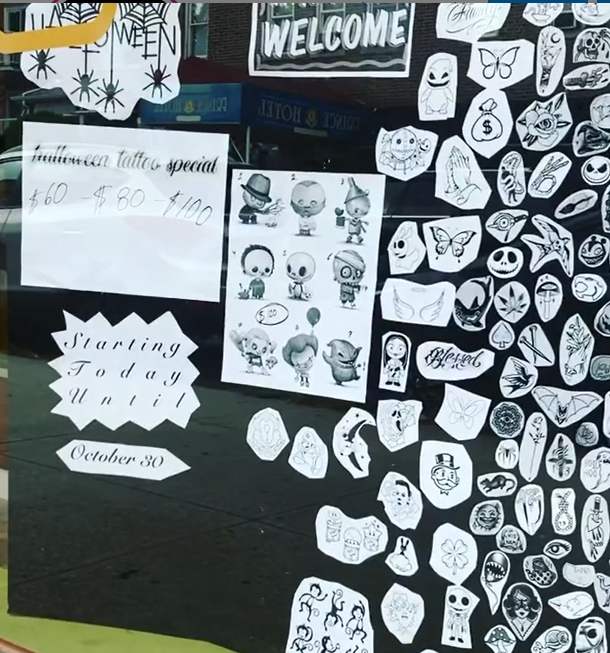 HALLOWEEN
WELCOME
Family
halloween tattoo special
$60 - $80 - $100
PRINCE HOTEL
PRINCE HOTEL
1 2 3
4 5
$100
7
$
Blessed
Starting
Today
Until
October 30